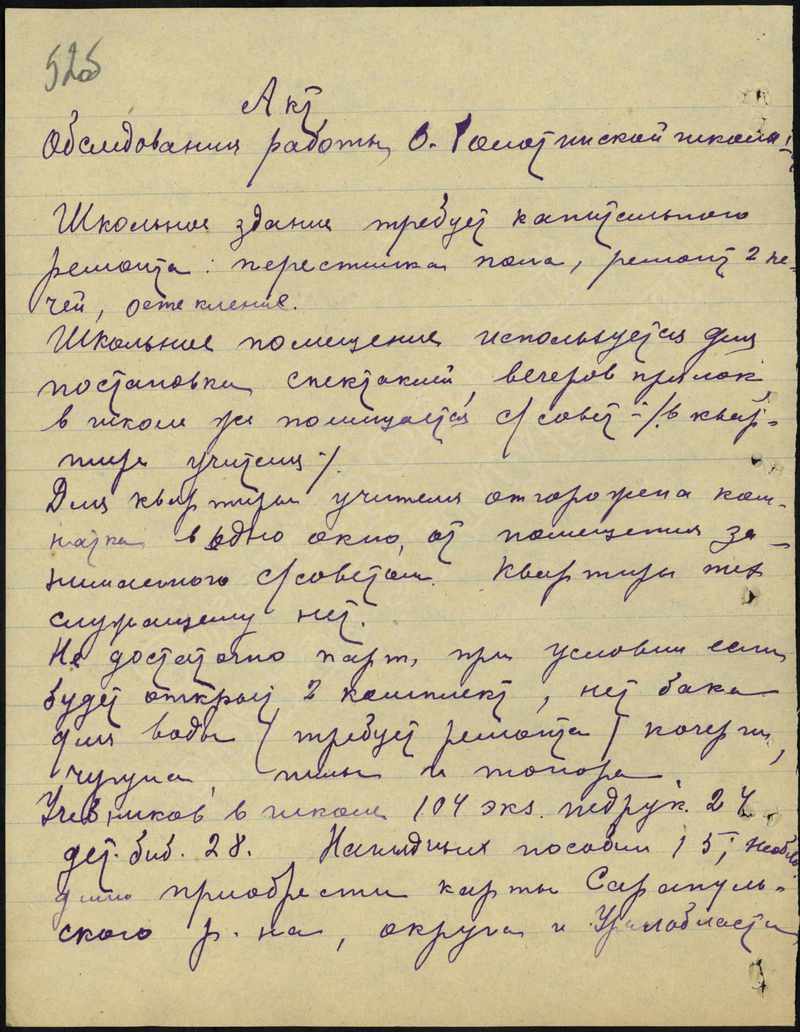 525
Акт
Обследования работы В. Ромотинской школы
Школьное здание требует капитального
ремонта: перестилка пола, ремонт 2 пе-
чей, остекление.
Школьное помещение используется для
постановки спектаклей, вечеров прялок,
в школе же помещается с/совет -/. в квар-
тире учителя -/.
Для квартиры учителя отгорожена ком-
натка в одно окно, от помещения за-
нимаемого с/советом. Квартиры тех
служащему нет.
Не достаточно парт, при условии если
будет открыт 2 комплект, нет бака
для воды / требует ремонта / кочерги,
чугуна, пилы и топора.
Учебников в школе 104 экз. педрук. 24,
дет. биб. 28. Наглядных пособий 15, необхо
димо приобрести карты Сарапуль-
ского р-на, округа и Уралобласти